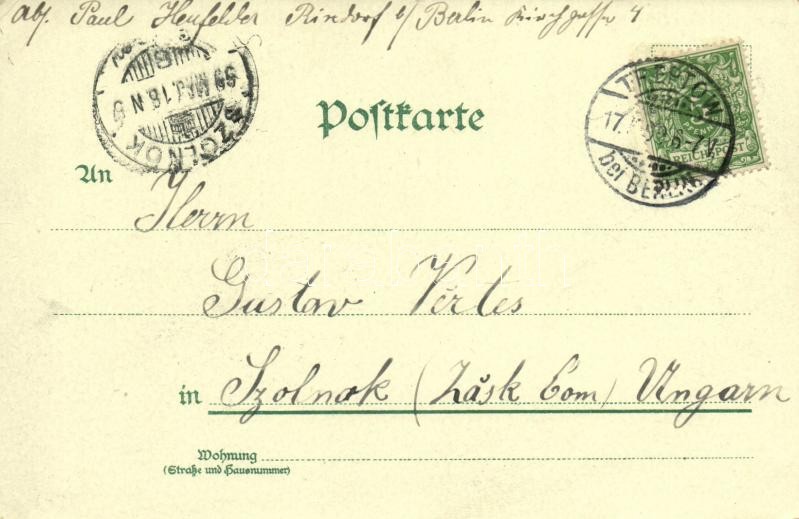 Abs. Paul Heufelder Rixdorf b/ Berlin Kirchgasse 4
SZOLNOK
99 MAJ. 18 N
TREPTOW
bei BERLIN
REICHSPOST
Postkarte
An Herrn
Gustav Vértes
in Szolnok (Jász Com) Ungarn
Wohnung
(Straße und Hausnummer)